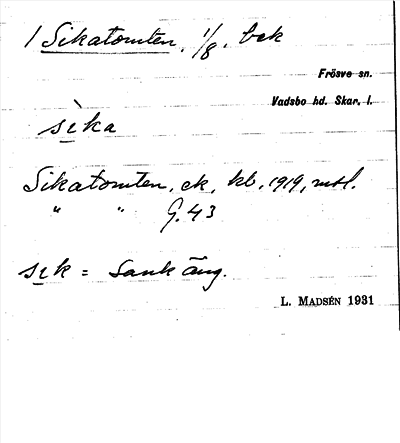 1 Sikatomten, 1/8, bek
Frösve sn.
Vadsbo hd. Skar. l.
sìka
Sikatomten, ek, kb, 1919, mtl.
" " G. 43
sik = Sank äng.
L. MADSÉN 1931